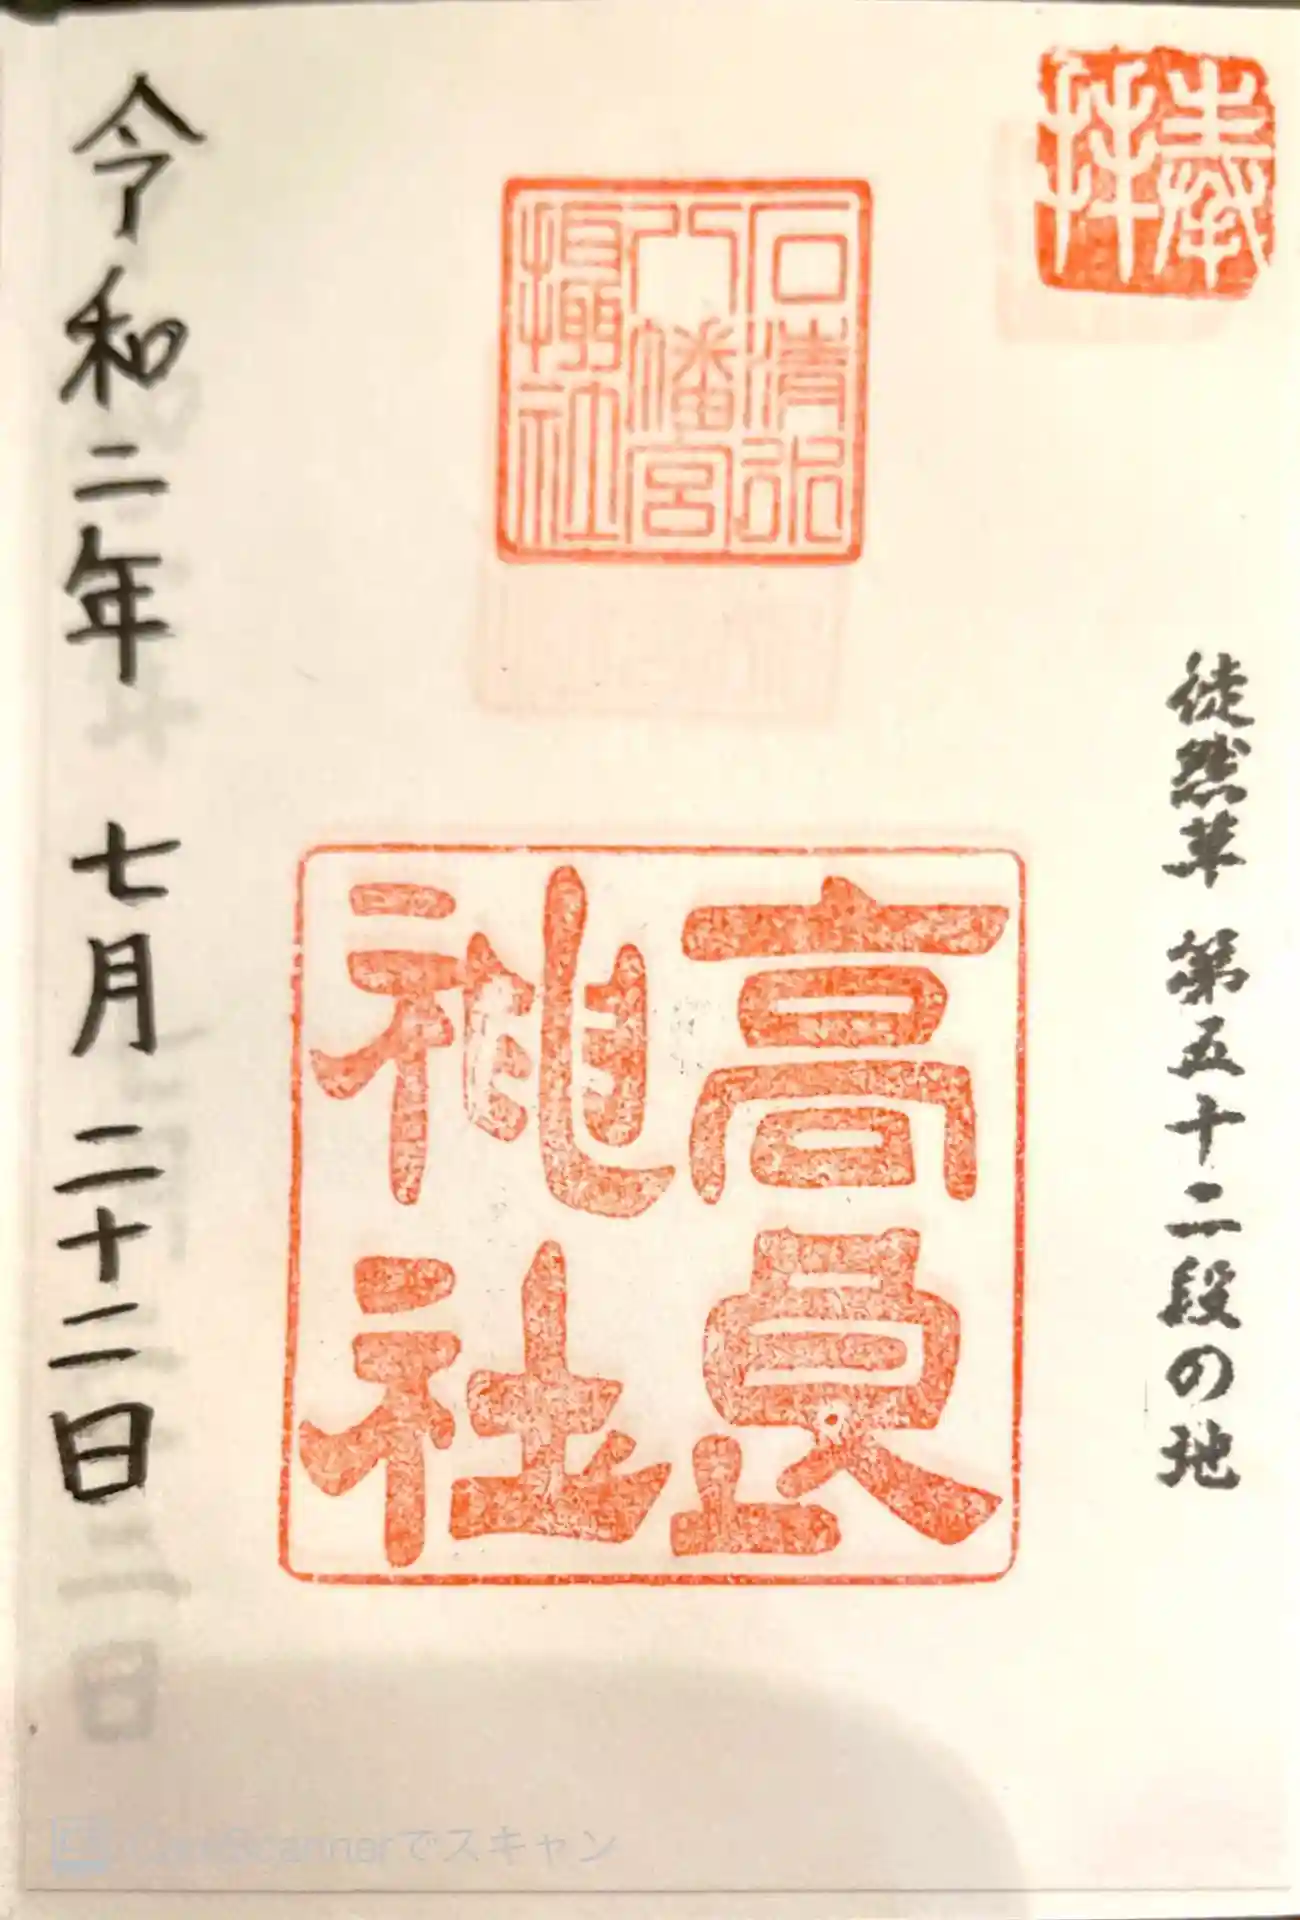 奉拝
徒然草 第五十二段の地
石清水
八幡宮
摂社
高良
神社
令和二年 七月 二十二日
CamScannerでスキャン